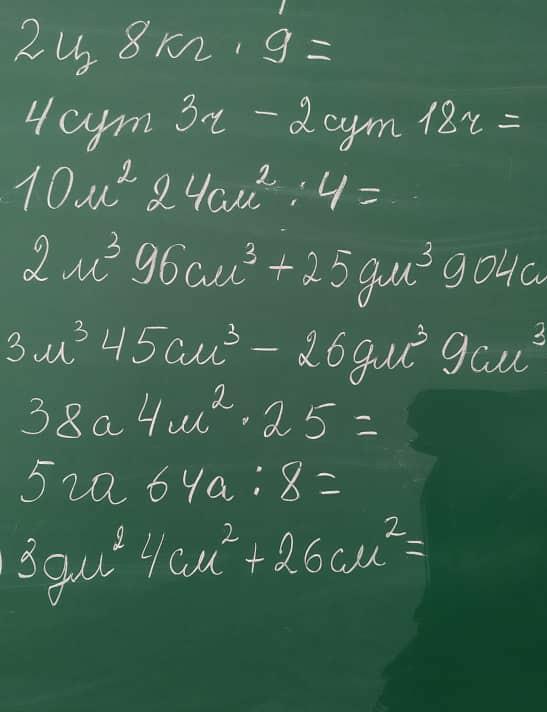 2ц 8кг · 9 =
4сут 3ч - 2сут 18ч =
10м² 24см² : 4 =
2м³ 96см³ + 25дм³ 904с
3м³ 45см³ - 26дм³ 9см³
38а 4м² · 25 =
5га 64а : 8 =
) 3дм² 4см² + 26см² =